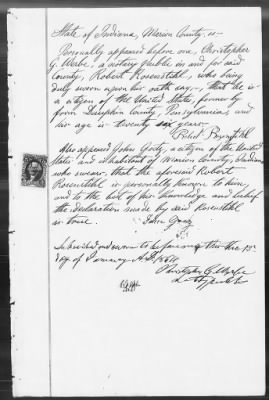 State of Indiana, Marion County, ss
Personally appeared before me, Christopher
G. Werbe, a notary public in and for said
County, Robert Rosenstihl, who being
duly sworn upon his oath say, that he is
a citizen of the United States, formerly
from Dauphin County, Pennsylvania, and
his age is twenty six years.
Robert Rosenstihl
Also appeared John Goetz, a citizen of the United
States and inhabitant of Marion County, Indiana
who swear, that the aforesaid Robert
Rosenstihl is personally known to him,
and to the best of his knowledge and belief
the declaration made by said Rosenstihl
is true.
John Goetz
Subscribed and sworn to before me this the
day of January A.D.
Christopher G. Werbe